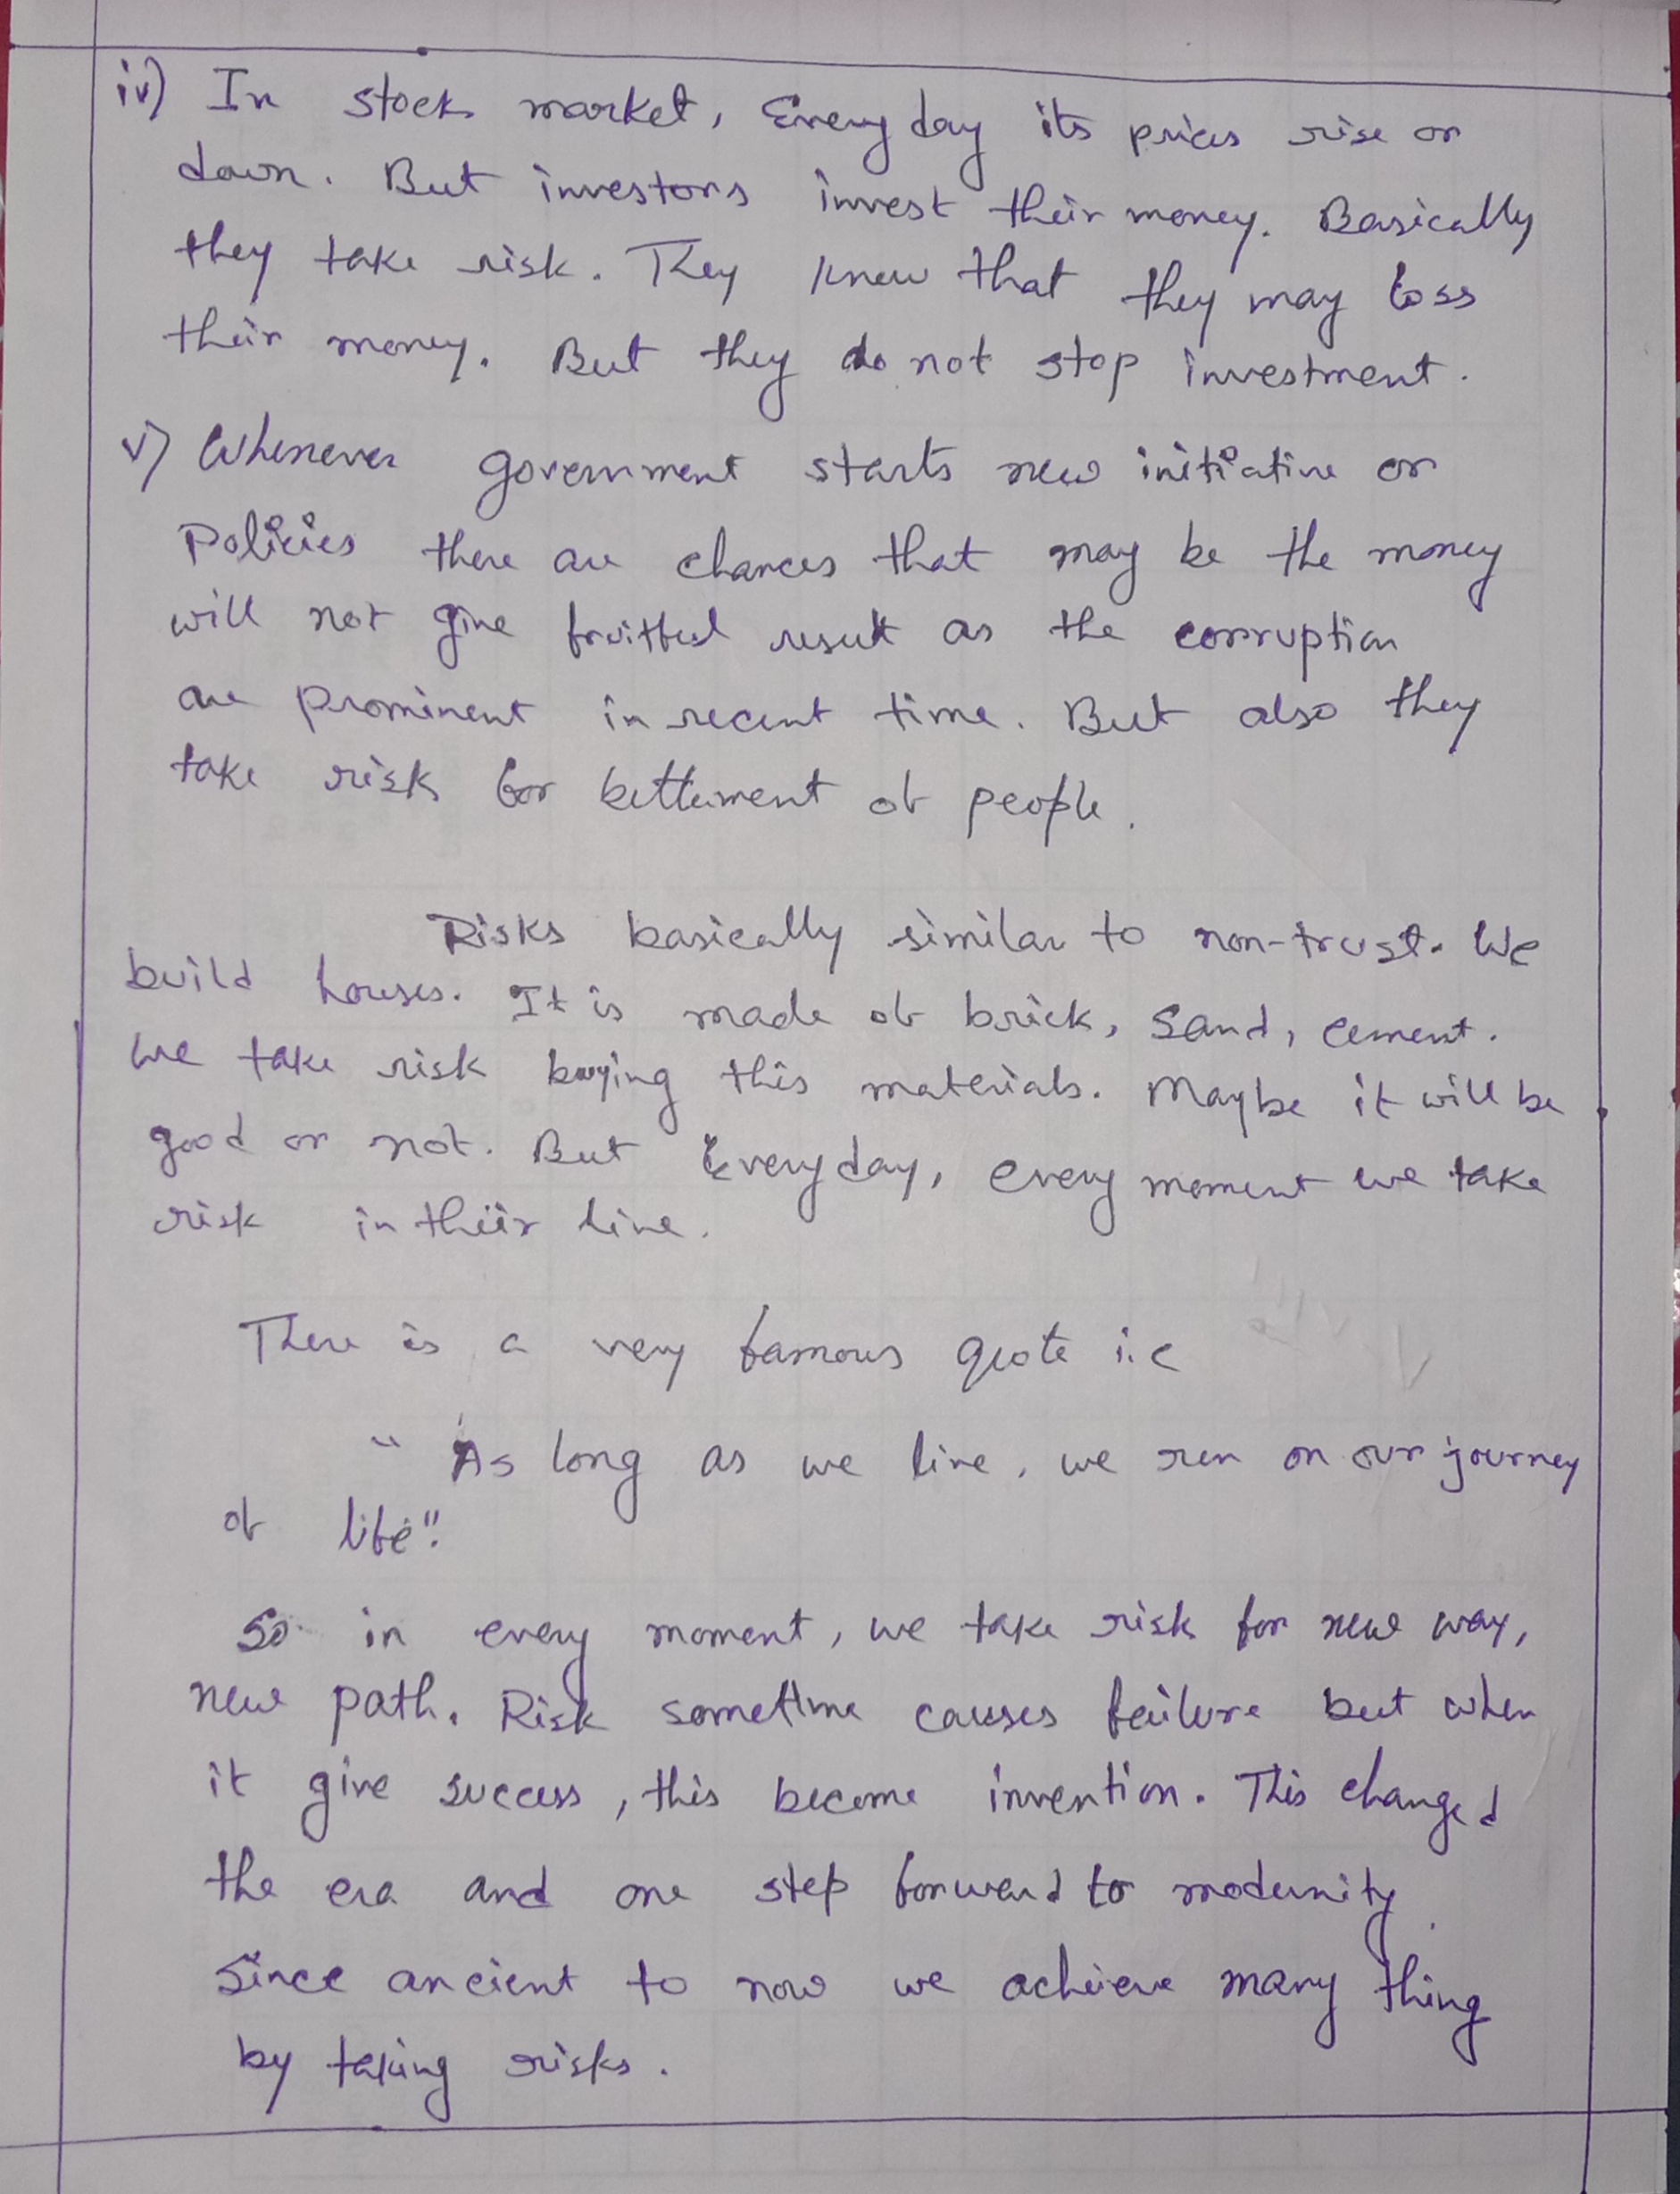 iv) In stock market, Everyday its prices rise or
down. But investors invest their money. Basically
they take risk. They knew that they may loss
their money. But they do not stop investment.
v) Whenever government starts new initiative or
Policies there are chances that may be the money
will not give fruitful result as the corruption
are prominent in recent time. But also they
take risk for betterment of people.
Risks basically similar to non-trust. We
build houses. It is made of brick, sand, cement.
We take risk buying this materials. Maybe it will be
good or not. But Everyday, every moment we take
risk in their live.
There is a very famous quote i.e
"As long as we live, we run on our journey
of life".
So in every moment, we take risk for new way,
new path. Risk sometime causes failure but when
it give success, this become invention. This changed
the era and one step forward to modernity.
Since ancient to now we achieve many thing
by taking risks.